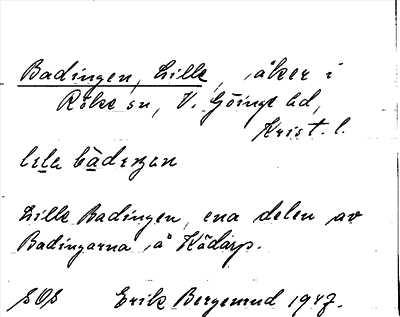 Badingen, Lille, åker i
Röke sn, V. Göinge hd,
Krist. l.
lela bàdeŋan
Lille Badingen, ena delen av
Badingarna å Kådarp.
SOS Erik Bergensund 1947.